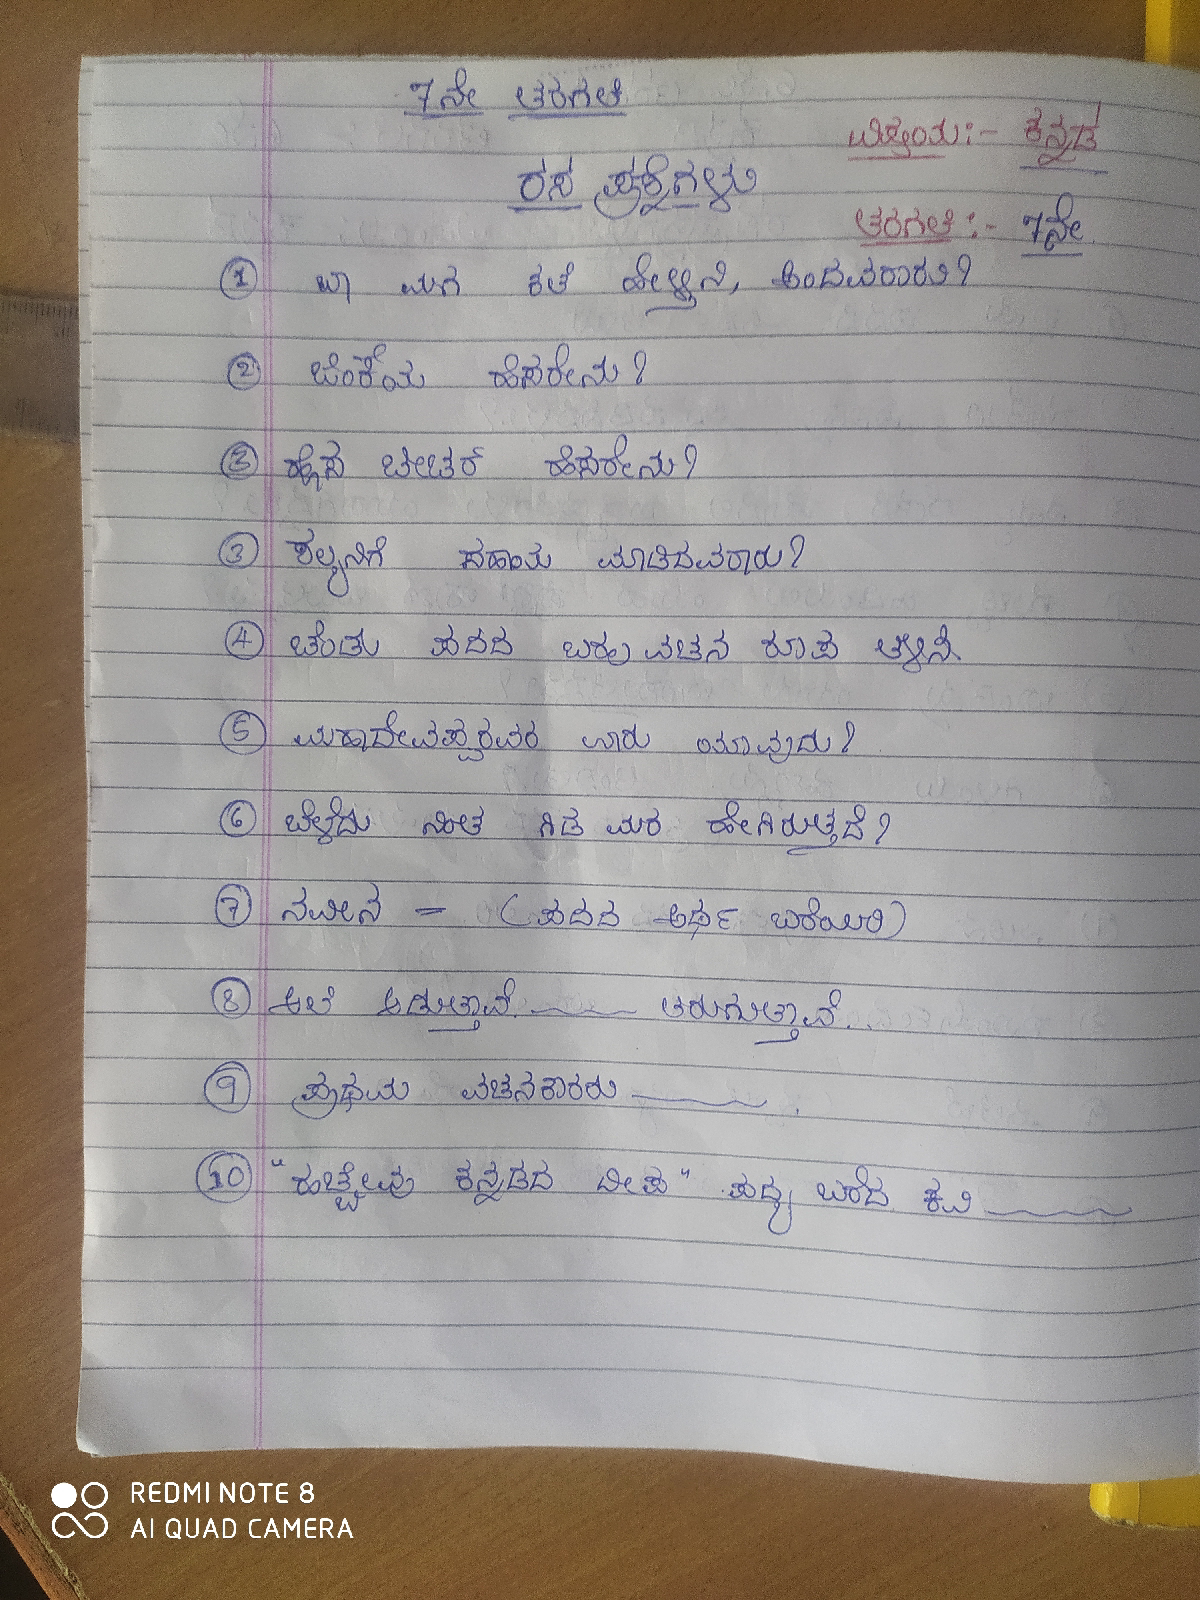 7ನೇ ತರಗತಿ
ವಿಷಯ:- ಕನ್ನಡ
ರಸ ಪ್ರಶ್ನೆಗಳು
ತರಗತಿ:- 7ನೇ
① ಬಾ ಮಗ ಕತೆ ಹೇಳ್ತಿನಿ, ಅಂದವರಾರು?
② ಜಿಂಕೆಯ ಹೆಸರೇನು?
③ ಹೊಸ ಟೀಚರ್ ಹೆಸರೇನು?
③ ಕಲ್ಯಾನಿಗೆ ಸಹಾಯ ಮಾಡಿದವರಾರು?
④ ಚೆಂಡು ಪದದ ಬಹುವಚನ ರೂಪ ತಿಳಿಸಿ.
⑤ ಮಹಾದೇವಪ್ಪರವರ ಊರು ಯಾವುದು?
⑥ ಬೆಳೆದು ನಿಂತ ಗಿಡ ಮರ ಹೇಗಿರುತ್ತದೆ?
⑦ ನವೀನ = (ಪದದ ಅರ್ಥ ಬರೆಯಿರಿ)
⑧ ಎಲೆ ಉದುರುತ್ತಾವೆ. ___ ತಿರುಗುತ್ತಾವೆ.
⑨ ಪ್ರಥಮ ವಚನಕಾರರು ___.
⑩ "ಹಚ್ಚೇವು ಕನ್ನಡದ ದೀಪ" ಪದ್ಯ ಬರೆದ ಕವಿ ___
REDMI NOTE 8
AI QUAD CAMERA